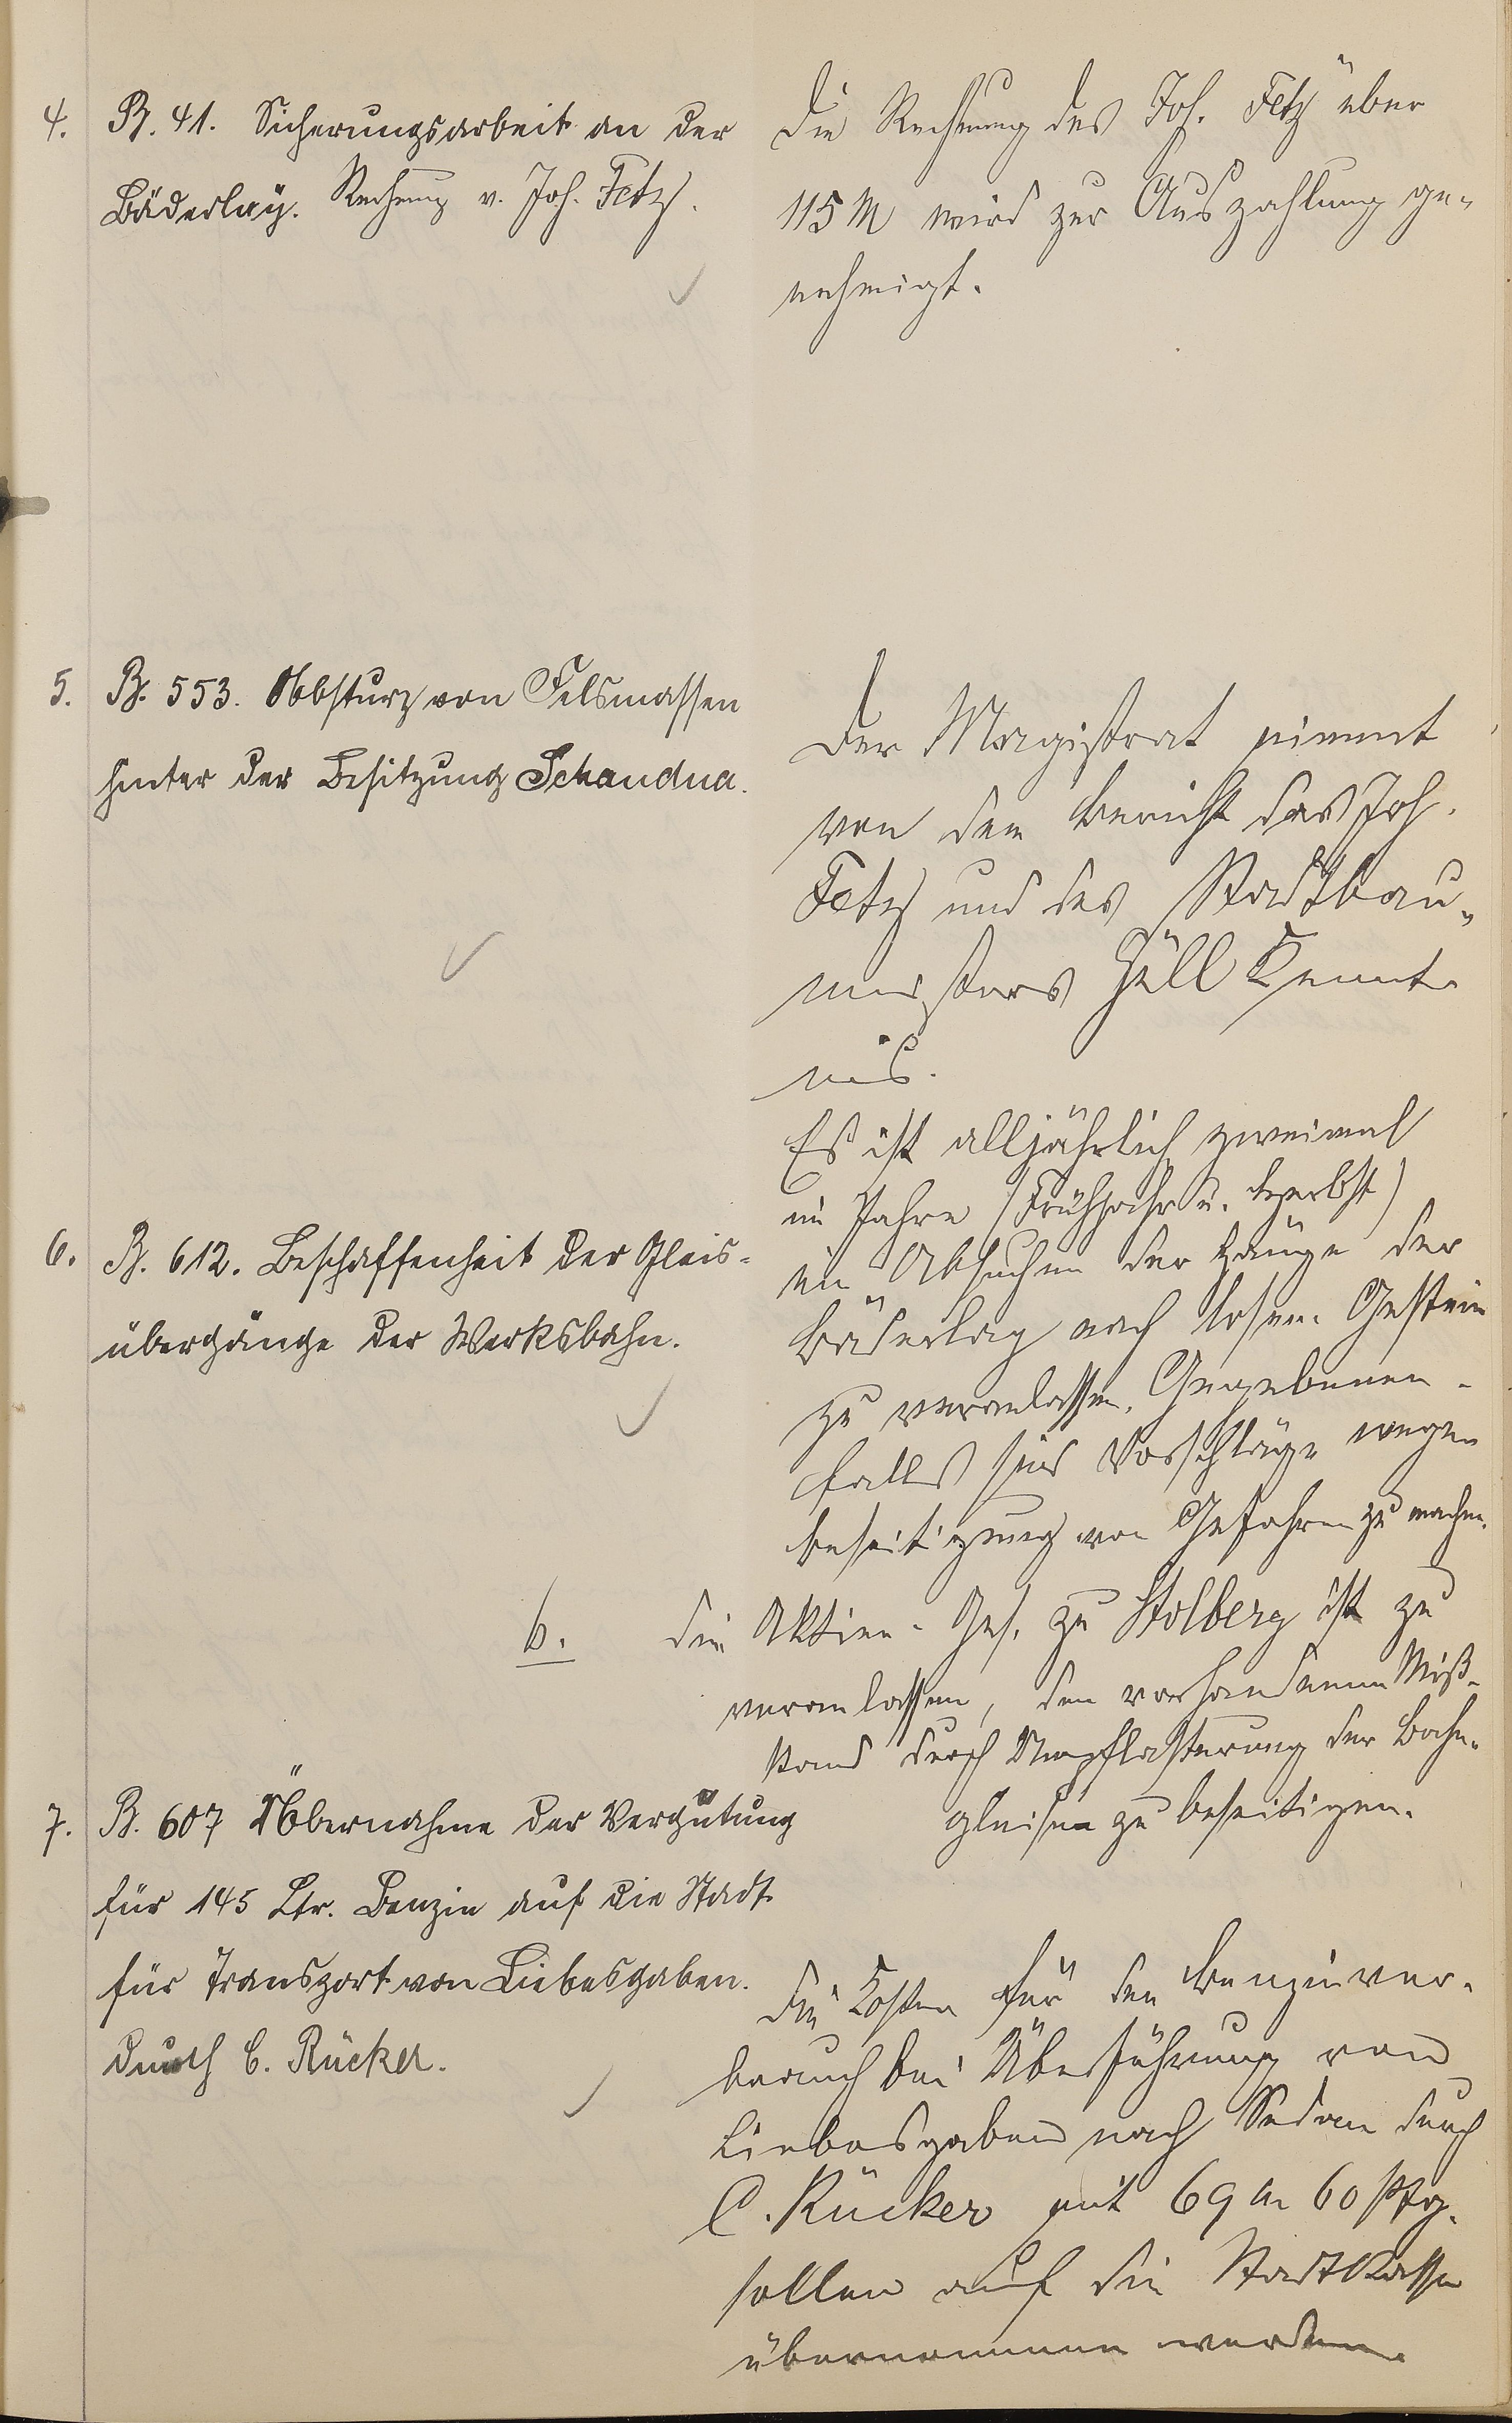 4. B. 41. Sicherungsarbeit an der
Bäderlay. Rechnung v. Joh. Fetz.
Die Rechnung des Joh. Fetz über
115 M wird zur Auszahlung ge-
nehmigt.
5. B. 553. Absturz von Felsmassen
hinter der Besitzung Schandua.
Der Magistrat nimmt
von dem Bericht des Joh.
Fetz und des Stadtbau-
meisters Hill Kennt-
nis.
Es ist alljährlich zweimal
im Jahre (Frühjahr u. Herbst)
ein Absuchen der Hänge der
Bäderlay nach losem Gestein
zu veranlassen. Gegebenen-
falls sind Vorschläge wegen
Beseitigung von Gefahren zu machen.
6. B. 612. Beschaffenheit der Gleis-
übergänge der Werksbahn.
6. Die Aktien-Ges. zu Stolberg ist zu
veranlassen, den vorhandenen Miß-
stand durch Umpflasterung der Bahn-
gleise zu beseitigen.
7. B. 607 Übernahme der Vergütung
für 145 Ltr. Benzin auf die Stadt
für Transport von Liebesgaben.
durch C. Rücker.
Die Kosten für den Benzinver-
brauch bei Überführung von
Liebesgaben nach Sedan durch
C. Rücker mit 69 M 60 Pfg.
sollen auf die Stadtkasse
übernommen werden.